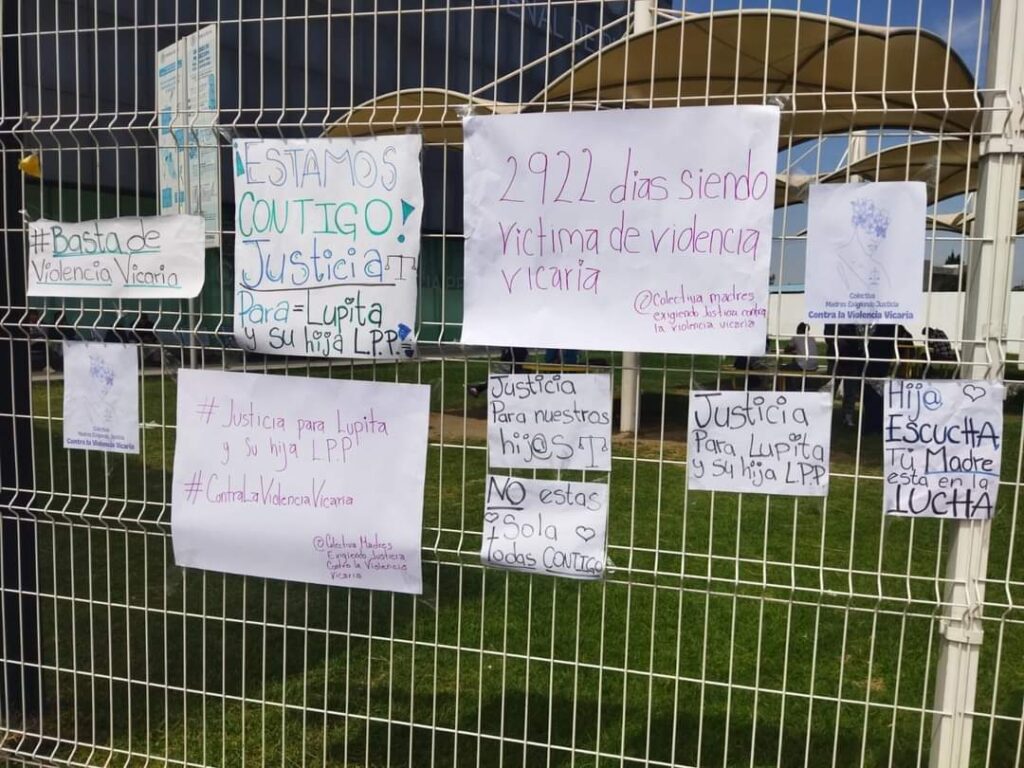 #Basta de
Violencia Vicaria
¡ESTAMOS
CONTIGO!
Justicia
Para = Lupita
y su hija L.P.P.
2922 dias siendo
victima de violencia
vicaria
@Colectiva madres
exigiendo Justicia contra
la violencia vicaria
Colectiva
Madres Exigiendo Justicia
Contra la Violencia Vicaria
Colectiva
Madres Exigiendo Justicia
Contra la Violencia Vicaria
#Justicia para Lupita
y su hija L.P.P
#ContraLaViolenciaVicaria
@Colectiva Madres
Exigiendo Justicia
Contra la Violencia
Vicaria
Justicia
Para nuestros
hij@s
NO estas
Sola
todas CONTIGO
Justicia
Para Lupita
y su hija L.P.P.
Hij@
EscucHA
Tú Madre
esta en la
LUCHA